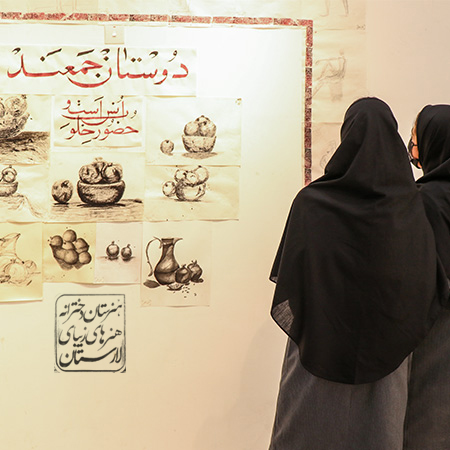 دوستان جمعند
و اُنس است و
حضورِ خلو
هنرستان دخترانه
هنرهای زیبای
لارستان